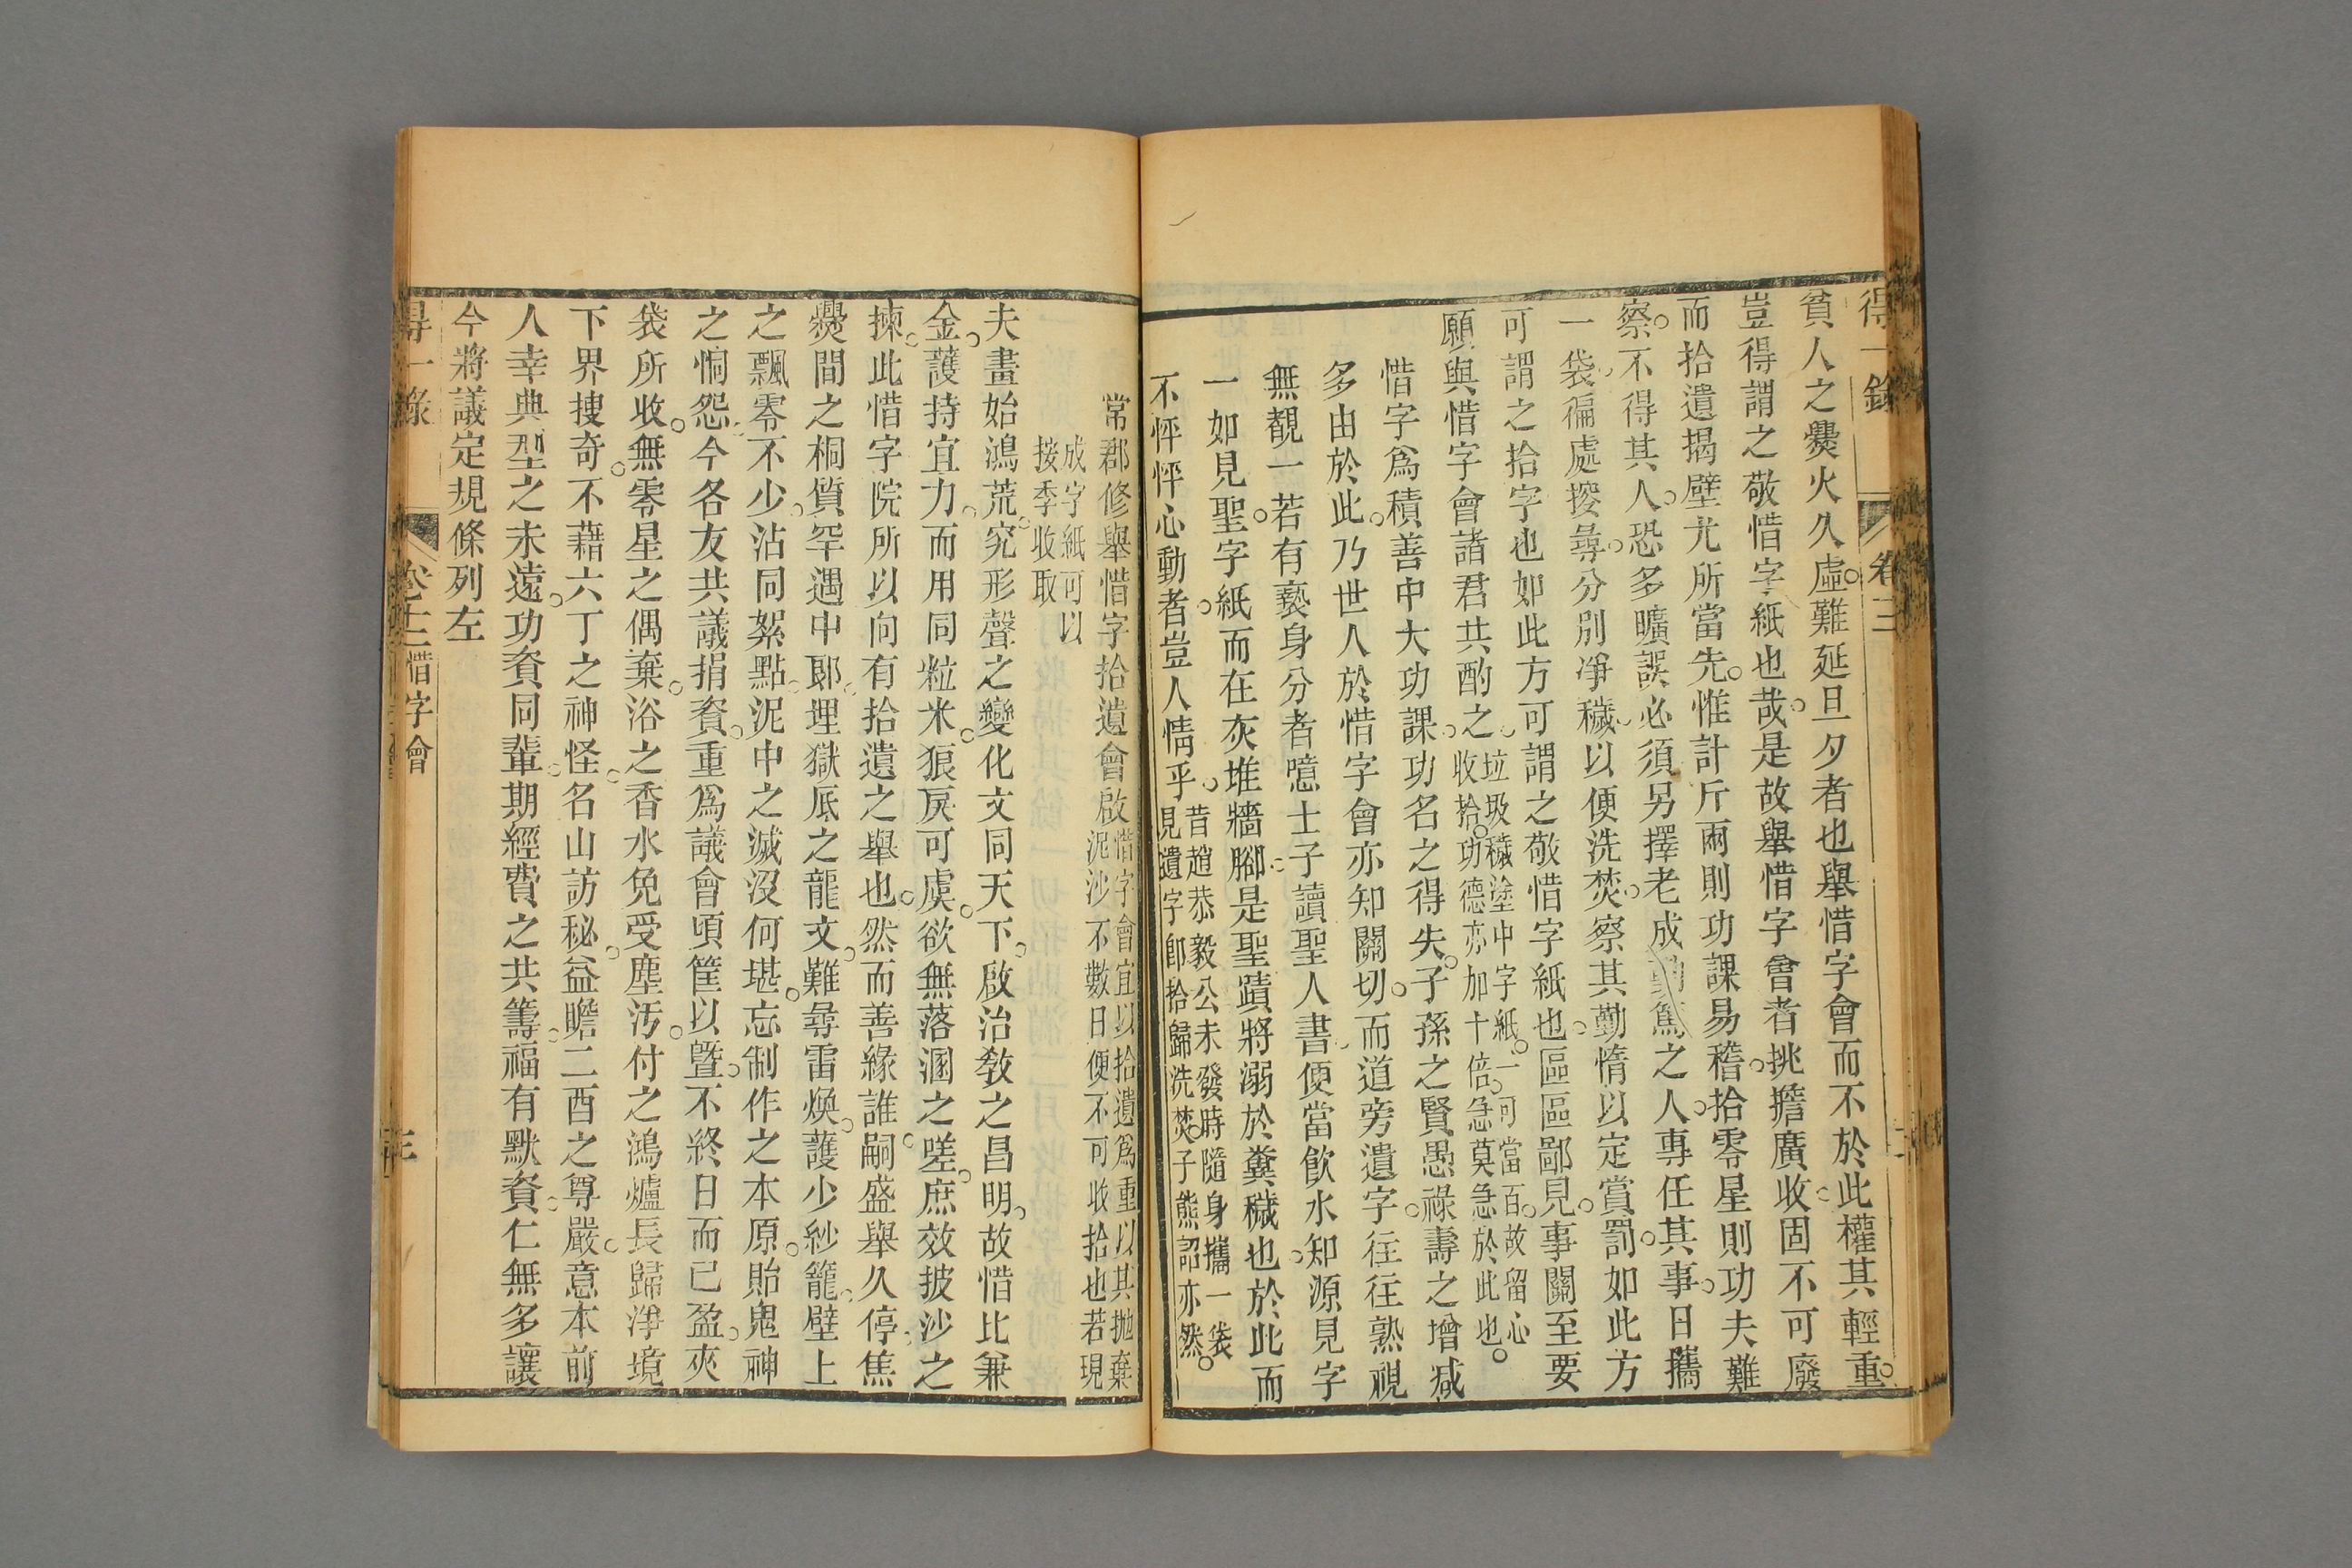 得一錄 卷三
貧人之爨火久虛。難延旦夕者也。舉惜字會而不於此權其輕重。
豈得謂之敬惜字紙也哉。是故舉惜字會者。挑擔廣收。固不可廢
而拾遺揭壁。尤所當先。惟計斤兩則功課易稽。拾零星則功夫難
察。不得其人。恐多曠誤。必須另擇老成勤篤之人。專任其事。日攜
一袋。徧處搜尋。分別淨穢。以便洗焚。察其勤惰以定賞罰。如此方
可謂之拾字也。如此方可謂之敬惜字紙也。區區鄙見。事關至要
願與惜字會諸君共酌之。垃圾穢塗中字紙。一可當百。故留心
收拾。功德亦加十倍。急莫急於此也。
惜字爲積善中大功課。功名之得失。子孫之賢愚。祿壽之增減
多由於此。乃世人於惜字會亦知關切。而道旁遺字。往往熟視
無覩。一若有褻身分者。噫。士子讀聖人書。便當飲水知源。見字
一如見聖。字紙而在灰堆牆腳。是聖蹟將溺於糞穢也。於此而
不怦怦心動者。豈人情乎。昔趙恭毅公未發時。隨身攜一袋
見遺字卽拾歸洗焚。子熊詔亦然。
常郡修舉惜字拾遺會啟 惜字會宜以拾遺爲重。以其拋棄
泥沙。不數日便不可收拾也。若現
成字紙。可以
按季收取
夫畫始鴻荒。究形聲之變化。文同天下。啟治敎之昌明。故惜比兼
金。護持宜力。而用同粒米。狼戾可虞。欲無落溷之嗟。庶效披沙之
揀。此惜字院所以向有拾遺之舉也。然而善緣誰嗣。盛舉久停。焦
爨間之桐質。罕遇中郎。埋獄底之龍文。難尋雷煥。護少紗籠。壁上
之飄零不少。沾同絮點。泥中之滅沒何堪。忘制作之本原。貽鬼神
之恫怨。今各友共議捐資。重爲議會。頃筐以曁。不終日而已盈。夾
袋所收。無零星之偶棄。浴之香水。免受塵汚。付之鴻爐。長歸淨境
下界搜奇。不藉六丁之神怪。名山訪秘。益瞻二酉之尊嚴。意本前
人。幸典型之未遠。功資同輩。期經費之共籌。福有默資。仁無多讓
今將議定規條列左
得一錄 卷十三 惜字會 三